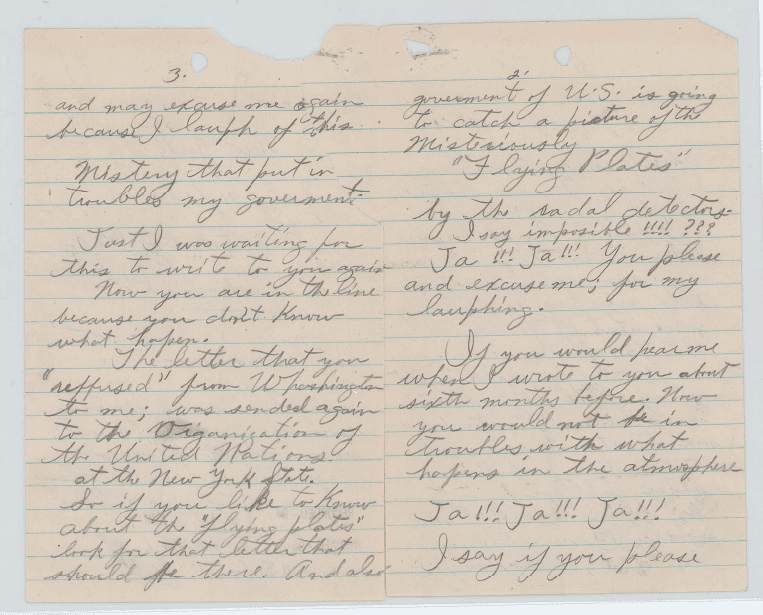 3.
and may excuse me again
because I lauph of this
Mistery that put in
troubles my goverment.
Just I was waiting for
this to write to you again
Now you are in the line
because you don't Know
what hapen.
The letter that you
"reffused" from Whashington
to me; was sended again
to the Organication of
the United Nations
at the New York State.
So if you like to Know
about the "flying plates"
look for that letter that
should be there. And also
2.
goverment of U.S. is going
to catch a picture of the
Misteriously
"Flying Plates"
by the radal detectors-
I say imposible !!!! ???
Ja !!! Ja!!! You please
and excuse me; for my
lauphing.
If you would hear me
when I wrote to you about
sixth months before. Now
you would not be in
troubles with what
hapens in the atmosphere
Ja!!! Ja!!! Ja!!!
I say if you please